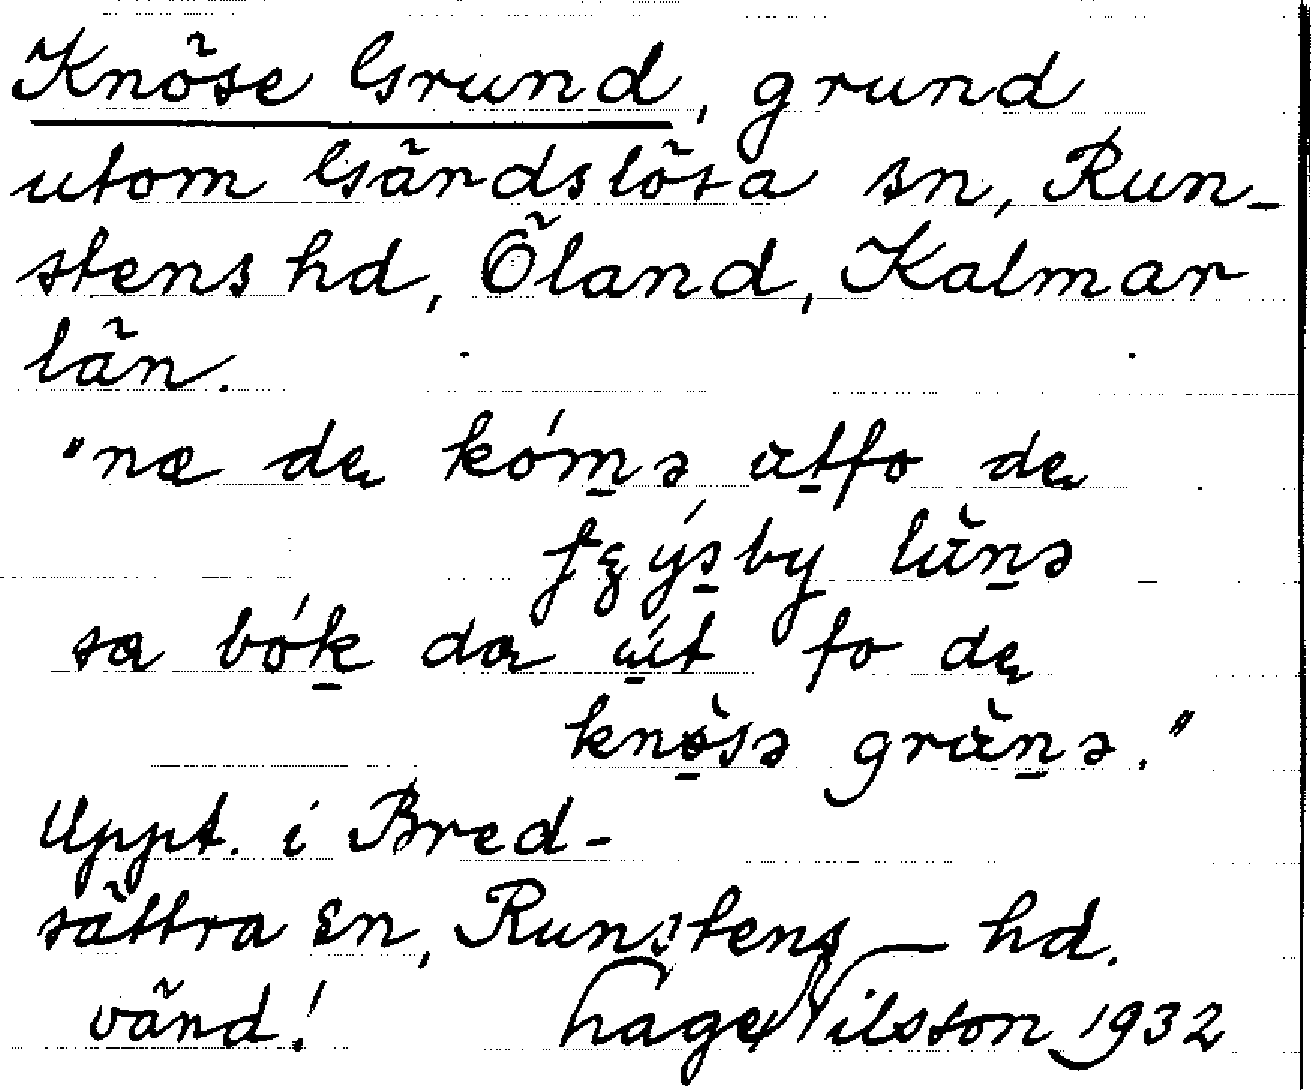 Knöse Grund, grund
utom Gärdslösa sn, Run-
stens hd, Öland, Kalmar
län.
"næ dę kóm̲ə ut̲fo dę
by lùn̲ə
sa bók̲ da ú̲t fo dę
knö̲̀sə grùn̲ə."
Uppt. i Bred-
sättra sn, Runstens hd.
vänd! Åage Nilsson 1932